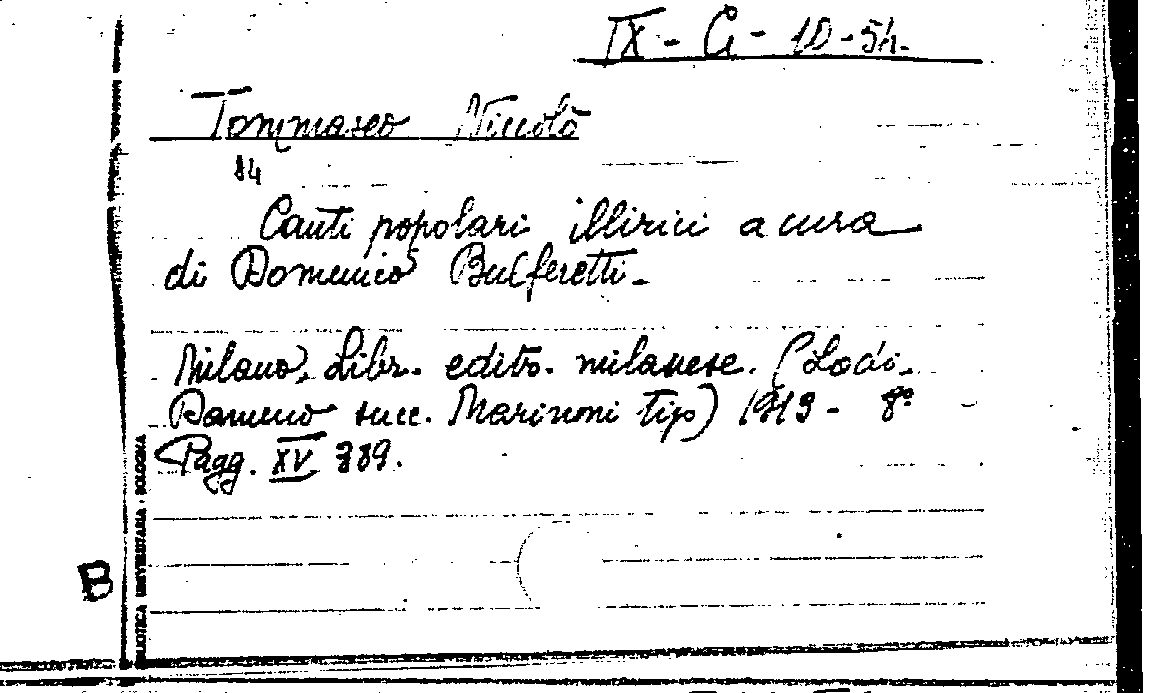 IX - G - 10 - 54.
Tommaseo Niccolò
84
Canti popolari illirici a cura
di Domenico Bulferetti.
Milano, Libr. edito. milanese. (Lodi.
succ. Marinoni tip) 1913 - 8º
Pagg. XV
B
BIBLIOTECA UNIVERSITARIA - BOLOGNA